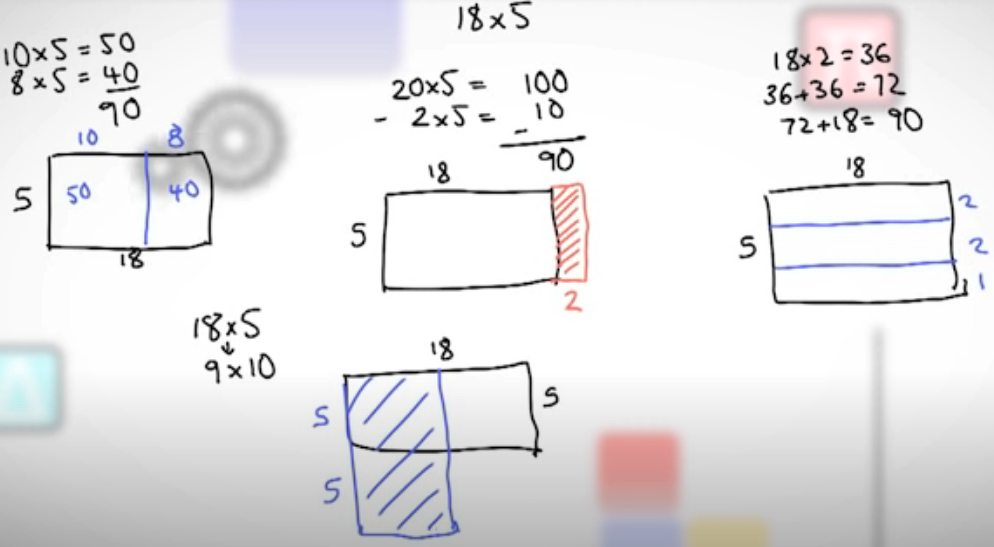 18×5
10×5=50
8×5=40
90
10 8
5 50 40
18
20×5= 100
- 2×5= - 10
90
18
5
2
18×2=36
36+36=72
72+18=90
18
5
2
2
1
18×5
↓
9×10
18
5
5
5
A